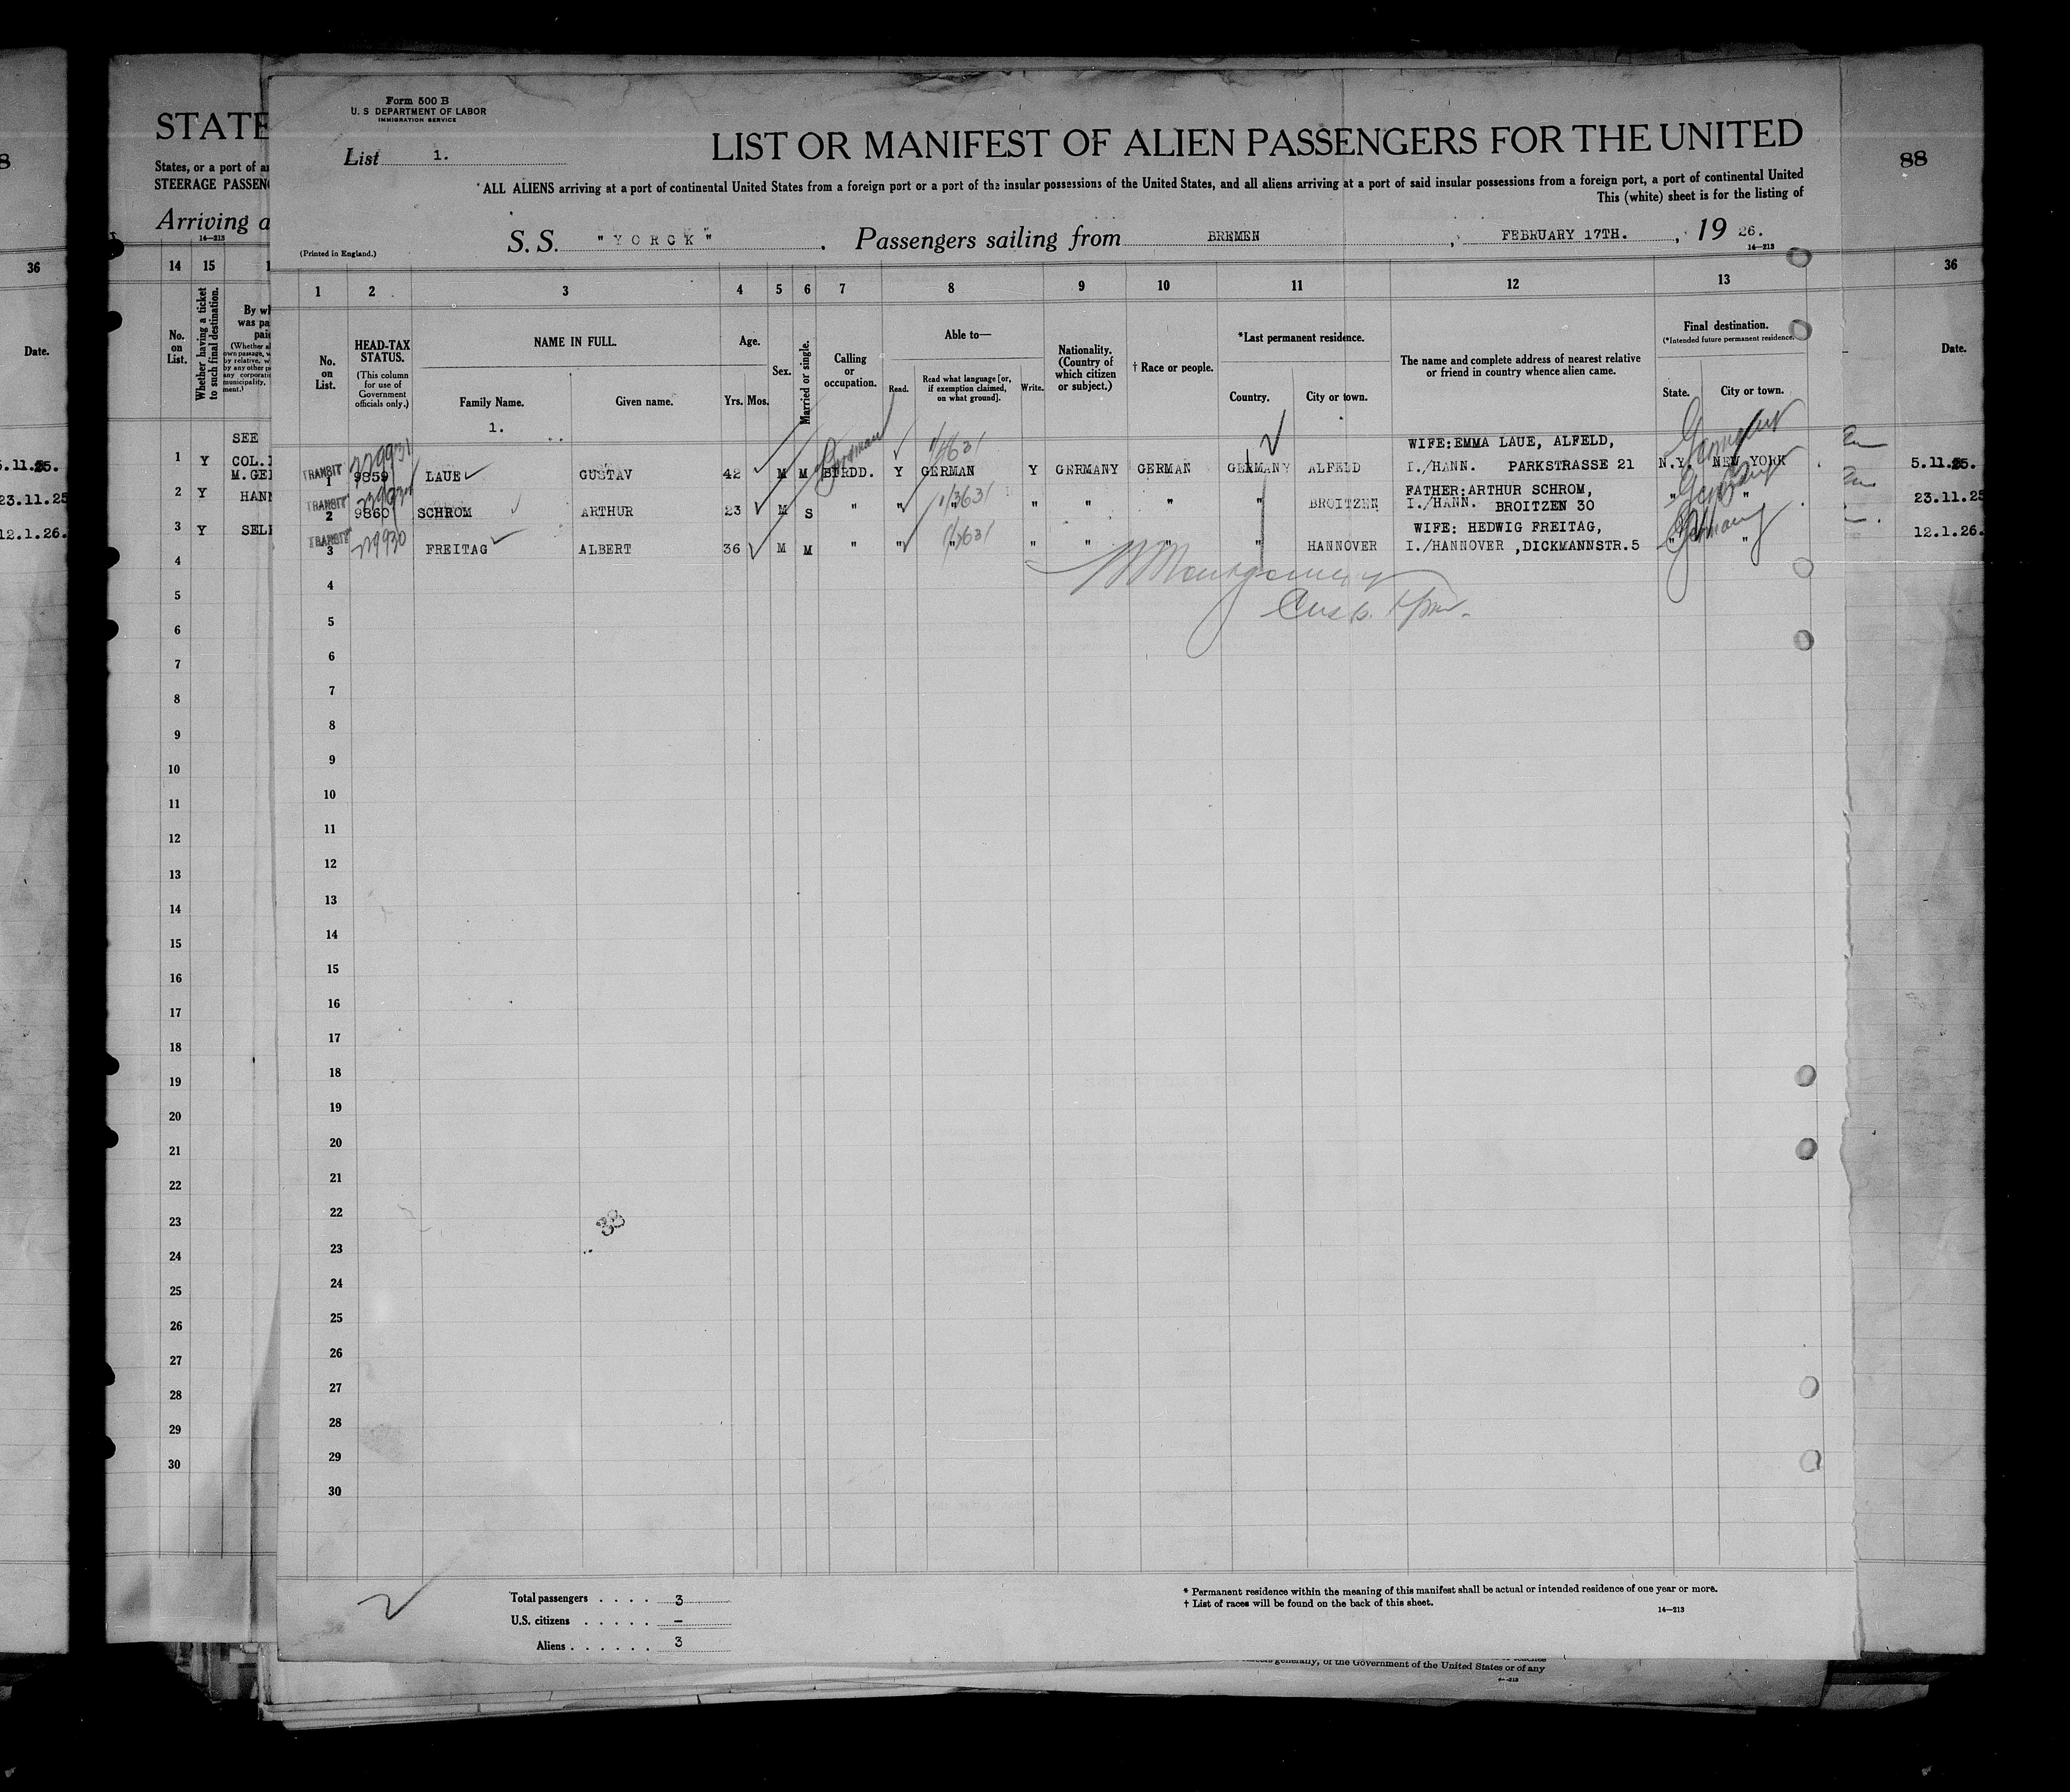 Form 500 B
U. S DEPARTMENT OF LABOR
IMMIGRATION SERVICE
List 1.
LIST OR MANIFEST OF ALIEN PASSENGERS FOR THE UNITED
ALL ALIENS arriving at a port of continental United States from a foreign port or a port of the insular possessions of the United States, and all aliens arriving at a port of said insular possessions from a foreign port, a port of continental United
This (white) sheet is for the listing of
(Printed in England.)
S. S. "YORCK". Passengers sailing from BREMEN, FEBRUARY 17TH., 19 26.
14—213
1 2 3 4 5 6 7 8 9 10 11 12 13
No. on List.
HEAD-TAX STATUS.
(This column for use of Government officials only.)
NAME IN FULL.
Family Name.
Given name.
1.
Age.
Yrs. Mos.
Sex.
Married or single.
Calling or occupation.
Able to—
Read.
Read what language [or, if exemption claimed, on what ground].
Write.
Nationality. (Country of which citizen or subject.)
† Race or people.
*Last permanent residence.
Country.
City or town.
The name and complete address of nearest relative or friend in country whence alien came.
Final destination.
(*Intended future permanent residence.)
State.
City or town.
WIFE:EMMA LAUE, ALFELD,
1 TRANSIT 9859 LAUE GUSTAV 42 M M BIRDD. Y GERMAN Y GERMANY GERMAN GERMANY ALFELD I./HANN. PARKSTRASSE 21 N.Y. NEW YORK
FATHER:ARTHUR SCHROM,
2 TRANSIT 9860 SCHROM ARTHUR 23 M S " " " " " " " BROITZEN I./HANN. BROITZEN 30 " "
WIFE: HEDWIG FREITAG,
3 TRANSIT 229930 FREITAG ALBERT 36 M M " " " " " " " HANNOVER I./HANNOVER ,DICKMANNSTR.5 " "
Germany
Montgomery
4
5
6
7
8
9
10
11
12
13
14
15
16
17
18
19
20
21
22
23
24
25
26
27
28
29
30
33
Total passengers . . . . 3
U.S. citizens . . . . . —
Aliens . . . . . . 3
* Permanent residence within the meaning of this manifest shall be actual or intended residence of one year or more.
† List of races will be found on the back of this sheet.
14—213
STATE
States, or a port of
STEERAGE
Arriving
14—213
14 15
No. on List.
Whether having a ticket to such final destination.
1 Y SEE
COL.
2 Y
3 Y
4
5
6
7
8
9
10
11
12
13
14
15
16
17
18
19
20
21
22
23
24
25
26
27
28
29
30
36
Date.
23.11.25
12.1.26.
88
36
Date.
5.11.25.
23.11.25
12.1.26.
generally, of the Government of the United States or of any